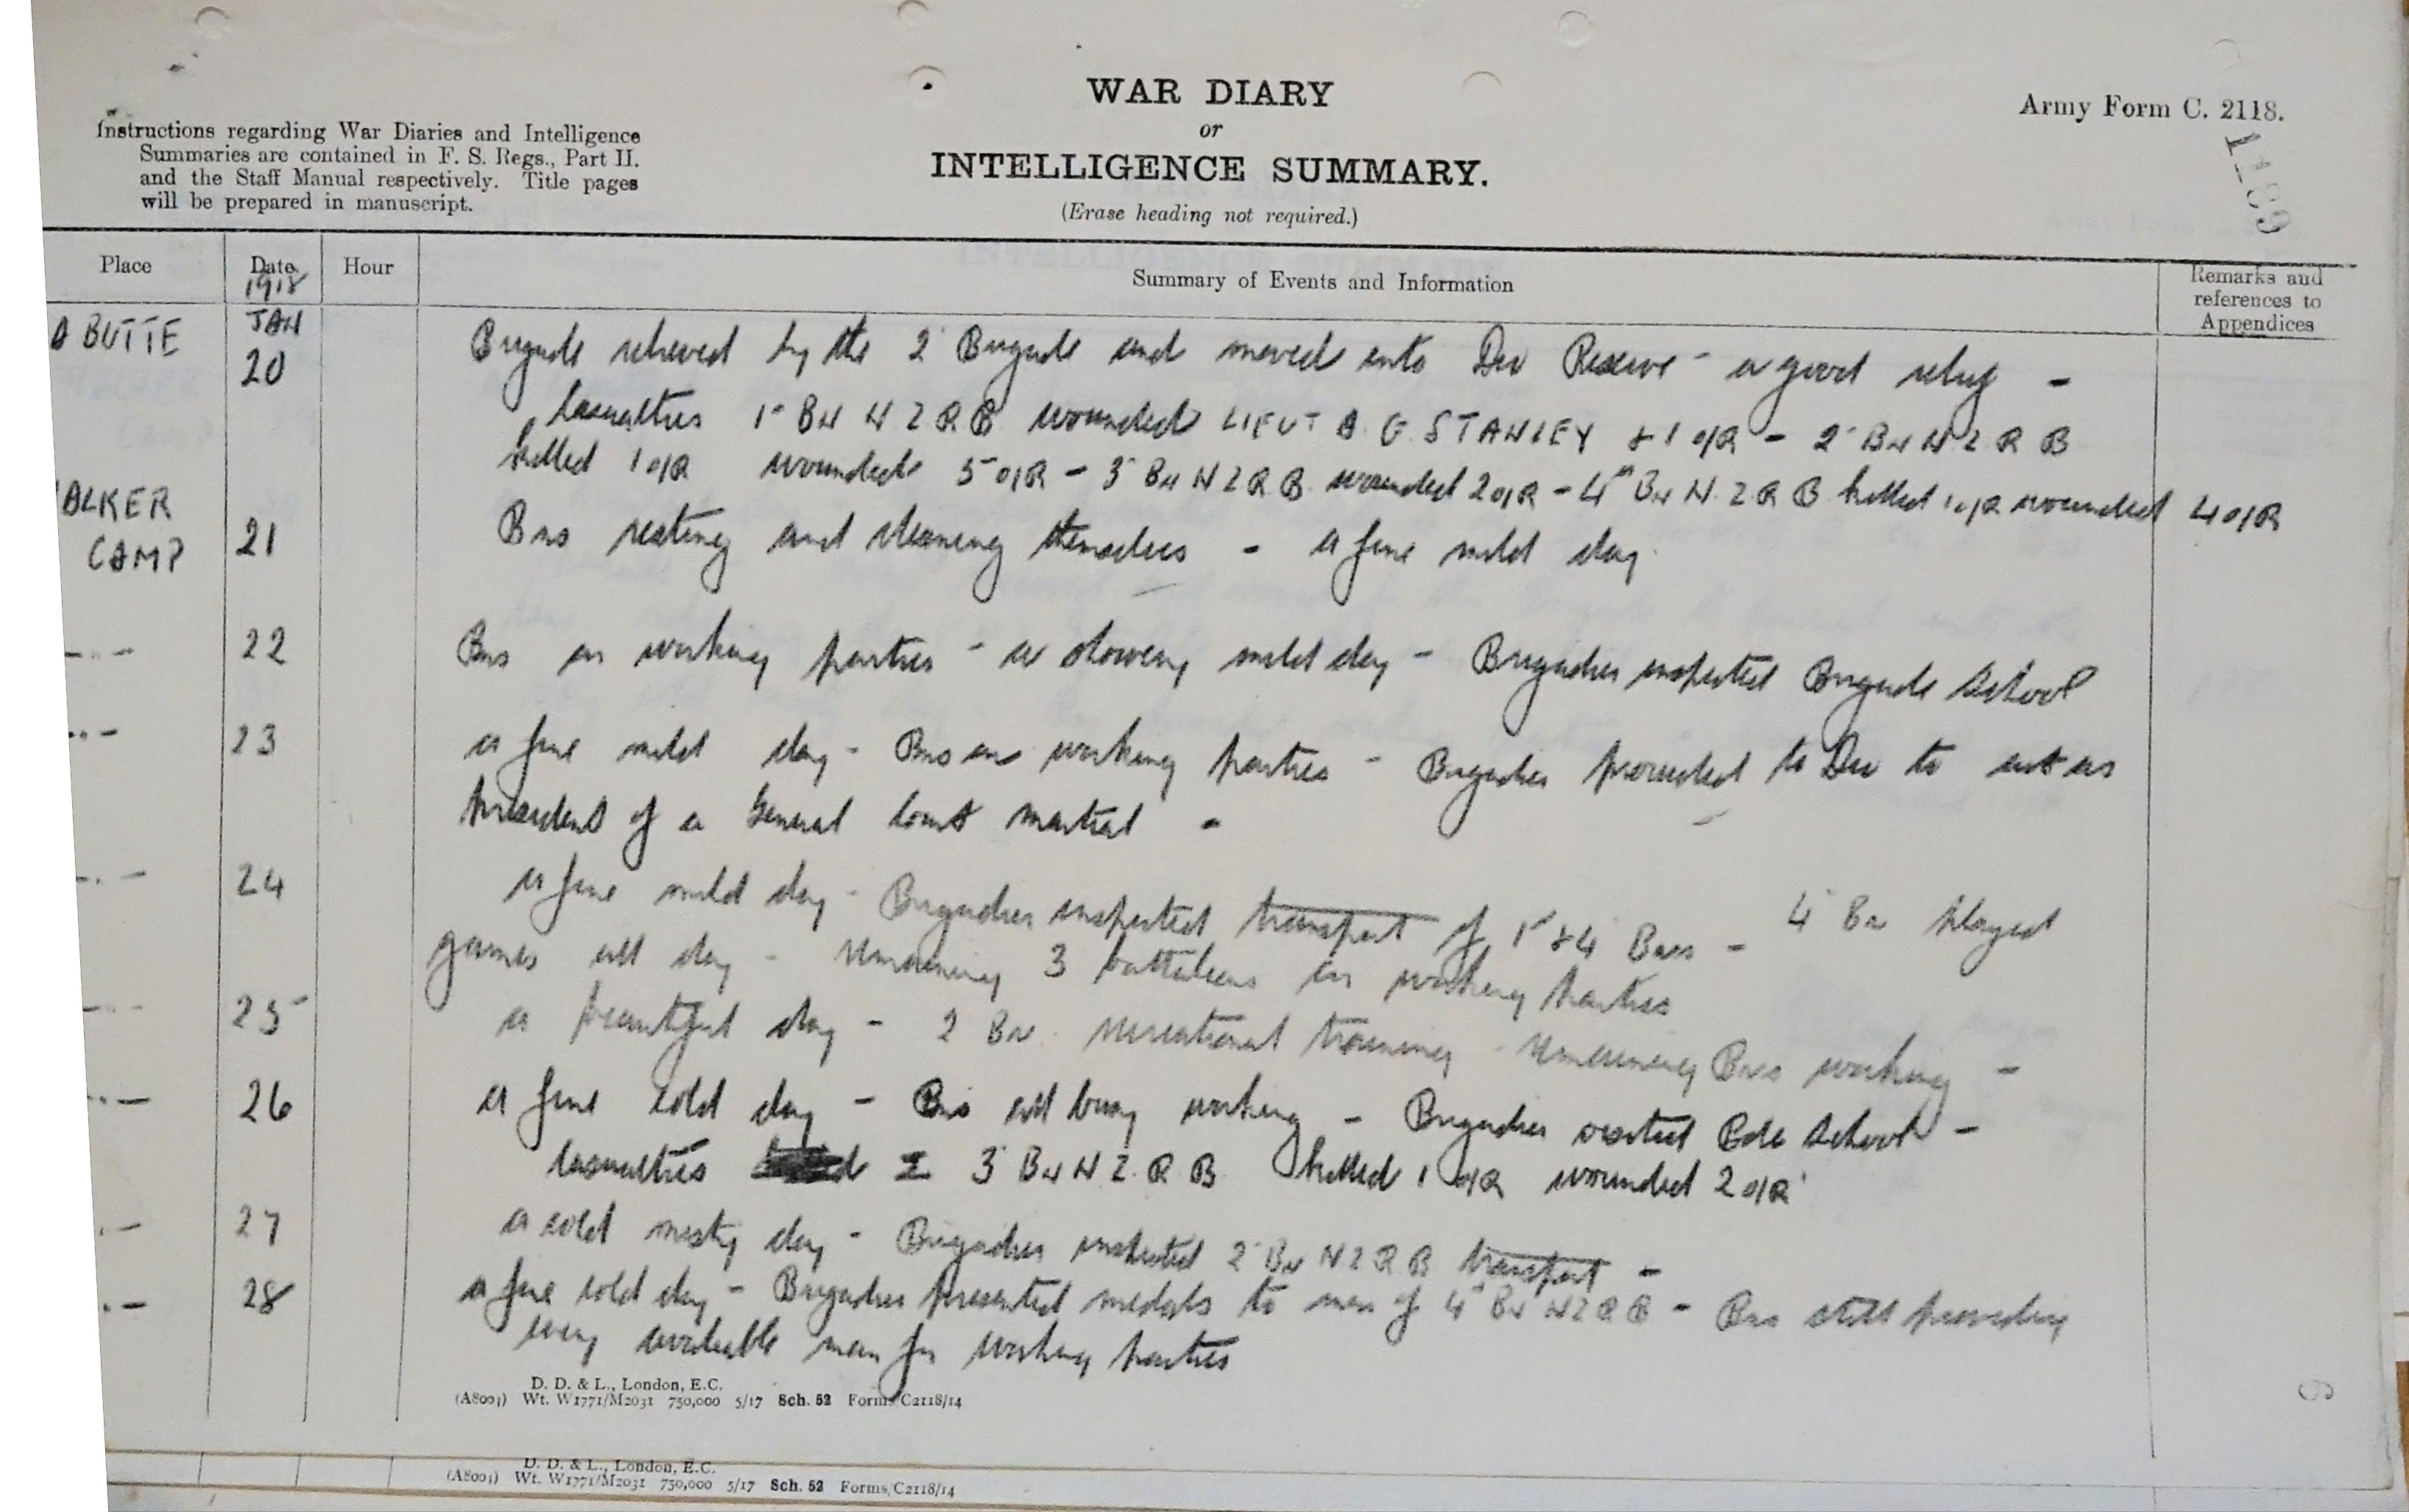 WAR DIARY
or
INTELLIGENCE SUMMARY.
(Erase heading not required.)
Army Form C. 2118.
Instructions regarding War Diaries and Intelligence
Summaries are contained in F. S. Regs., Part II.
and the Staff Manual respectively. Title pages
will be prepared in manuscript.
Place Date 1918 Hour Summary of Events and Information Remarks and
references to
Appendices
A BUTTE JAN
20 Brigade relieved by the 2 Brigade and moved into Div Reserve - a good relief -
Casualties 1st BN N Z R B wounded LIEUT A G STANLEY & 1 O/R - 2 BN N Z R B
killed 1 O/R wounded 5 O/R - 3 BN N Z R B wounded 2 O/R - 4th BN N. Z R B killed 1 O/R wounded 4 O/R
ALKER
CAMP 21 Bns resting and cleaning themselves - a fine mild day
22 Bns on working parties - a showery mild day - Brigadier inspected Brigade School
23 a fine mild day - Bns on working parties - Brigadier proceeded to Div to act as
President of a General Court Martial -
24 a fine mild day - Brigadier inspected transport of 1st & 4 Bns - 4 Bn played
games all day - remaining 3 battalions on working parties
25 a beautiful day - 2 Bn recreational training - remaining Bns working -
26 a fine cold day - Bns all busy working - Brigadier visited Bde School -
Casualties 3 BN N Z. R B killed 1 O/R wounded 2 O/R
27 a cold misty day - Brigadier inspected 2 BN N Z R B transport -
28 a fine cold day - Brigadier presented medals to men of 4 BN N Z R B - Bns still providing
every available man for working parties
D. D. & L., London, E.C.
(A8001) Wt. W1771/M2031 750,000 5/17 Sch. 52 Forms/C2118/14
D. D. & L., London, E.C.
(A8001) Wt. W1771/M2031 750,000 5/17 Sch. 52 Forms/C2118/14